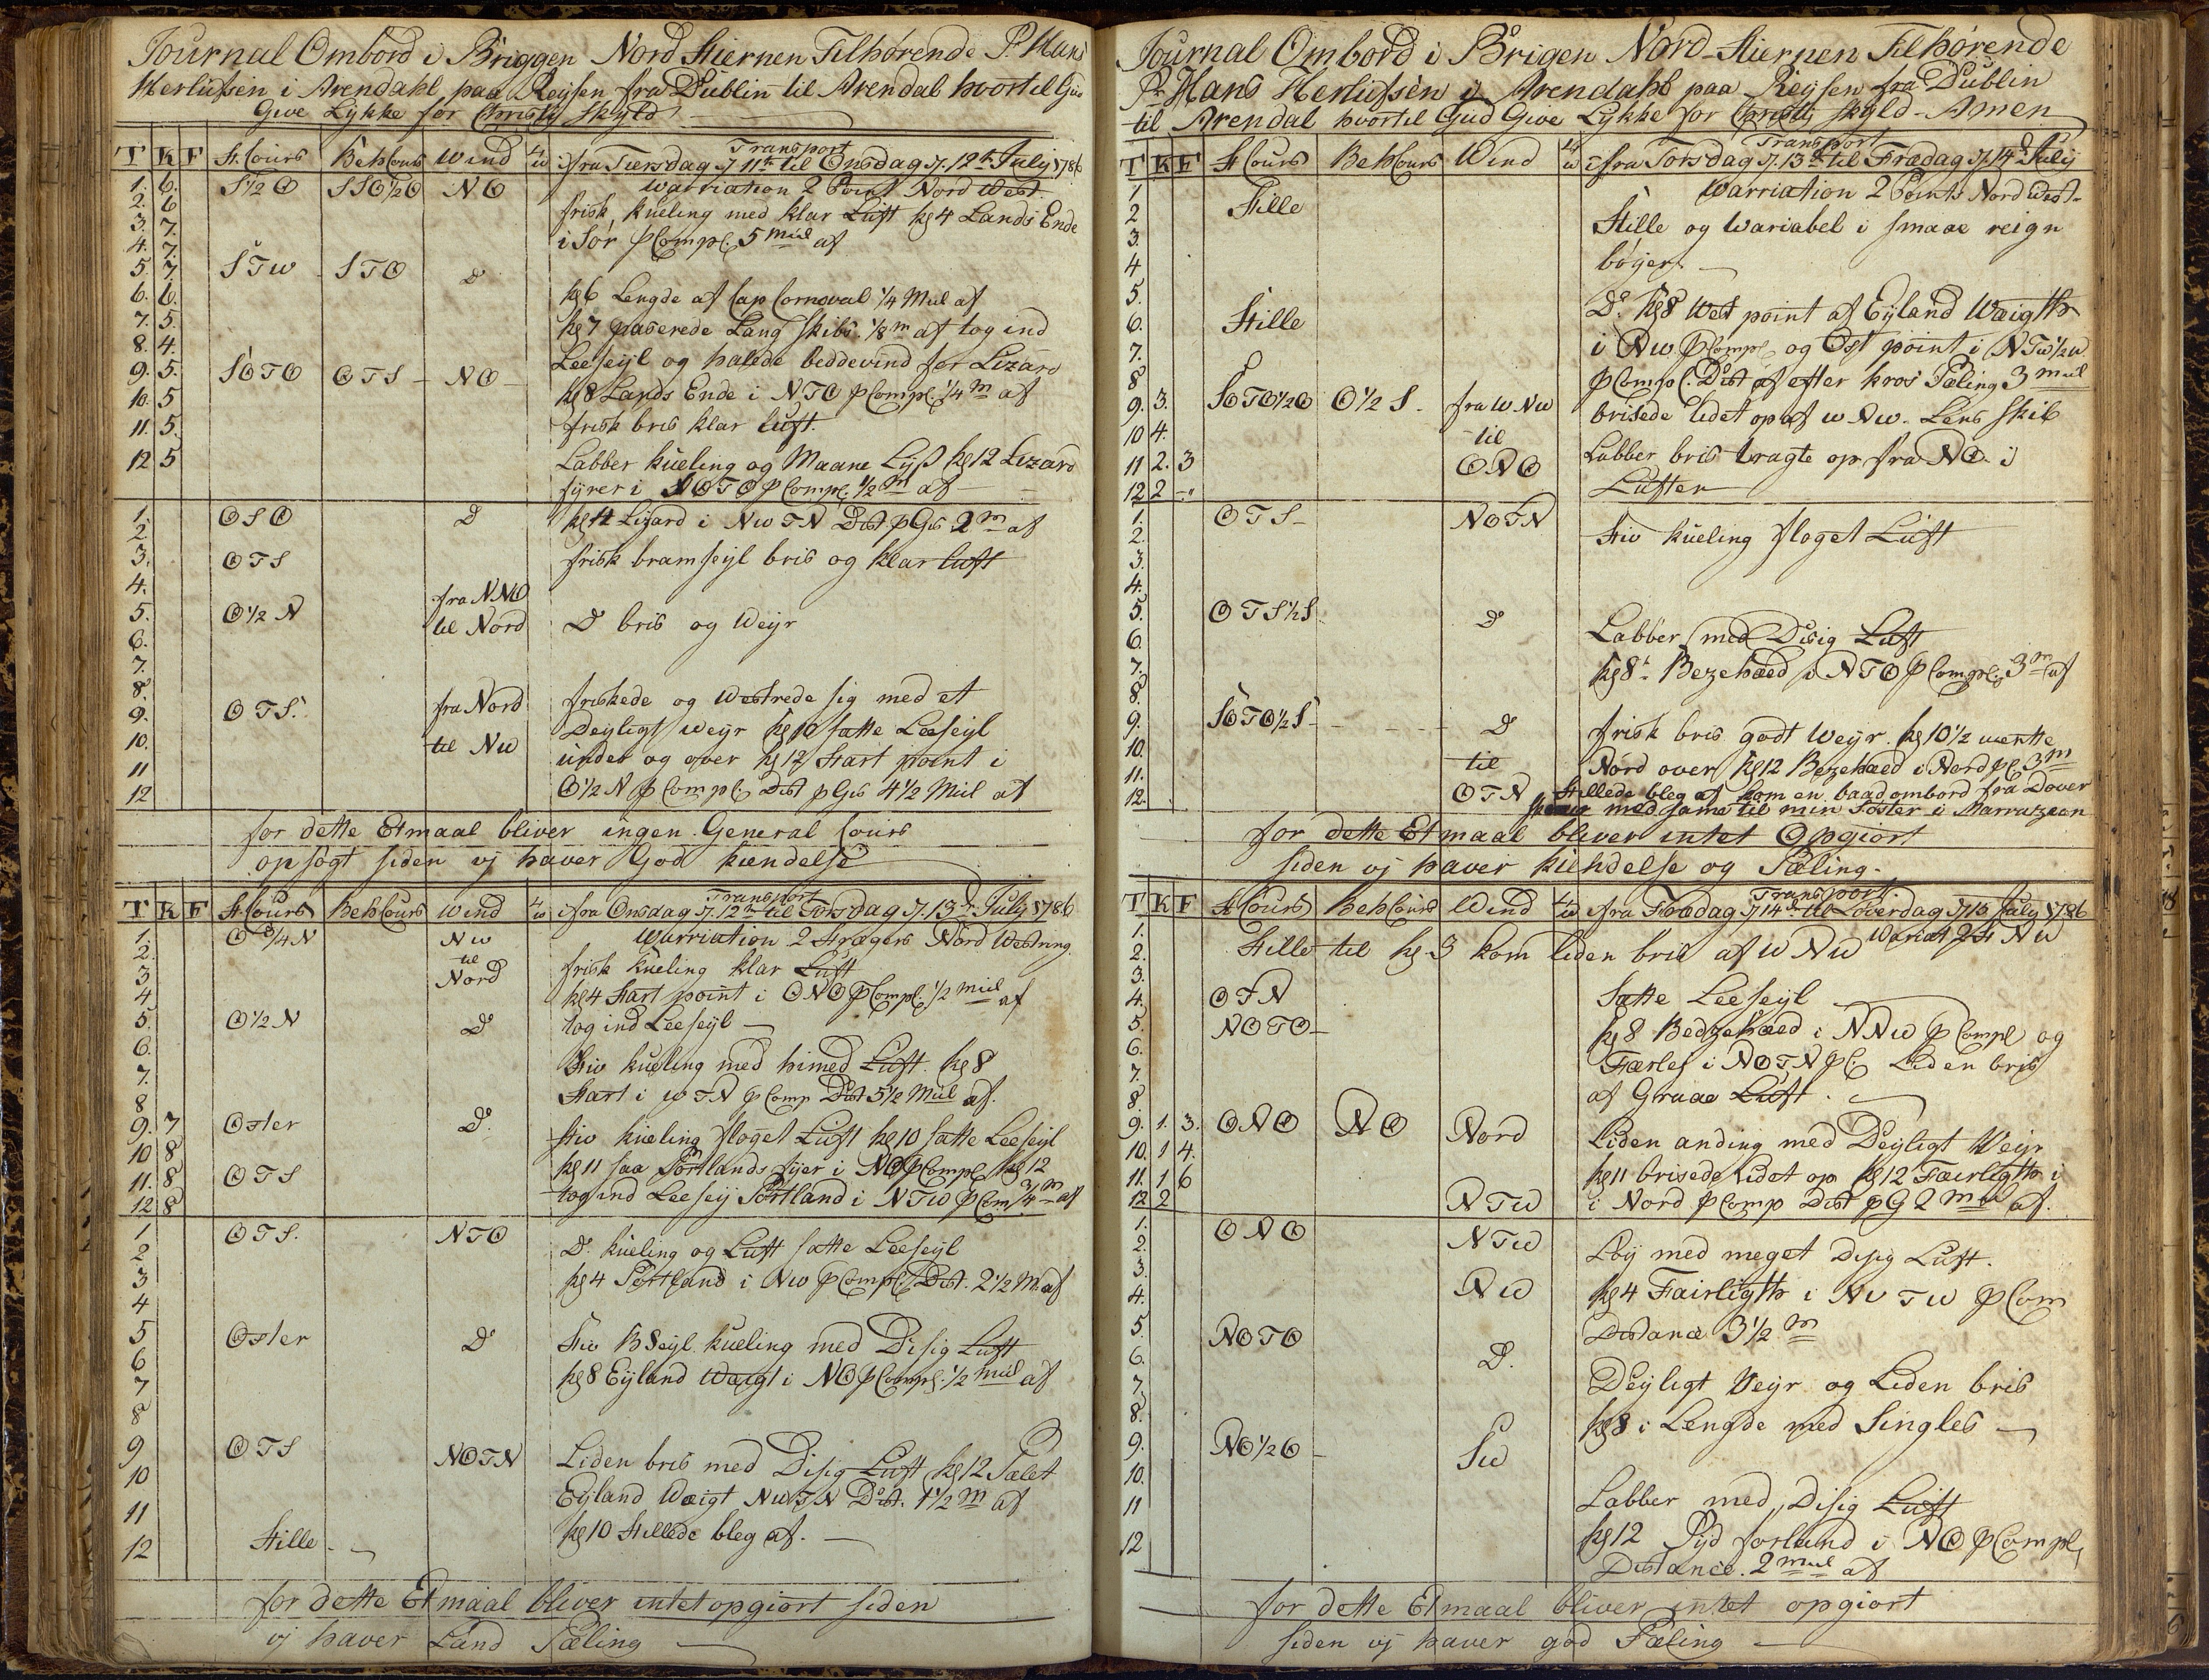 Journal Ombord i Briggen Nord Stiernen Tilhørende Sr. Hans
Herlufsen i Arendahl paa Reysen fra Dublin til Arendal hvortil Gud
Give Lykke for Christj Skyld
Transport
T K F St. Cours Beh Cours Wind fra Tiersdag d. 11te til Onsdag d. 12te Julij 1786
Warriation 2 Point Nord West
1. 6. S 1/2 O SSO 1/2 O NO
2. 6 frisk kueling med klar Luft kl 4 Lands Ende
3. 7. i Sør p Compl. 5 mil af
4. 7.
5. 7. STW STO Do
6. 6. kl 6 Lengde af Cap Cornoval 1/4 Mil af
7. 5. kl 7 paserede Lang skibs 1/8 m af tog ind
8. 4. Leeseyl og halede beddevind for Lizard
9. 5. SOTO OTS NO
10. 5 kl 8 Lands Ende i NTO p Compl. 1/4 m af
11. 5. frisk bris klar luft.
12 5 Labber kueling og Maane Lyss kl 12 Lizard
fyrer i NOTO p Compl. 1/2 m af
1. OSO Do kl 4 Lizard i NWTN Dist p Gis 2 m af
2.
3. OTS frisk bramseyl bris og klar luft
4. fra NNO
5. O 1/2 N til Nord Do bris og Weyr
6.
7.
8. fra Nord friskede og Westrede sig med et
9. OTS. Deyligt weyr kl 10 satte Leeseyl
10. til NW under og over kl 12 Start point i
11
12 O 1/2 N p Compl. Dist p Gis 4 1/2 Mil af
for dette Etmaal bliver ingen General Cours
opsøgt siden vj haver God kiendelse
Transport
T K F St Cours Beh Cours Wind fra Onsdag d. 12te til Torsdag d. 13de Julij 1786
1. O 3/4 N NW Warriation 2 Stregers Nord Westring
2. til
3 Nord frisk kueling klar Luft
4 kl 4 Start point i ONO p Compl. 1/2 mil af
5. O 1/2 N Do tog ind Leeseyl
6. Stiv kueling med himed Luft. kl 8
7.
8 Start i WTN p Comp Dist 5 1/2 Mil af.
9. 7 Oster Do. stiv kueling floget Luft kl 10 satte Leeseyl
10 8 kl 11 saa Portlands fyer i NO p Compl kl 12
11. 8 OTS
12 8 tog ind Leesey Portland i NTW p Com 3/4 m af
1 OTS. NTO Do. kueling og Luft satte Leeseyl
2
3 kl 4 Portland i NW p Compl. Dist. 2 1/2 M. af
4
5 Oster Do Stiv B Seyl. kueling med Disig Luft
6 kl 8 Eyland Waigt i NO p Compl. 1/2 mil af
7
8
9 OTS NOTN Liden bris med Disig Luft kl 12 Pælet
10 Eyland Waigt NWTN Dist. 1 1/2 m af
11
12 Stille kl 10 Stillede bleg af.
for dette Etmaal bliver intet opgiort siden
vj haver Land Pæling
Journal Ombord i Brigen Nord-Stiernen Tilhørende
Sr. Hans Herlufsen i Arendahl paa Reysen fra Dublin
til Arendal hvortil Gud Give Lykke for Christj Skyld - Amen
Transport
T K F St Cours Beh Cours Wind fra Torsdag d. 13de til Fredag d. 14de Julij
1 Warriation 2 Points Nord West
2 Stille
3. Stille og Wariabel i smaae reign
4 bøyer.
5. Do. kl 8 West point af Eyland Waigth
6. Stille
7. i NW p Compl. og Ost point i NTW 1/2 W
8 p Compl. Dist af efter kros Pæling 3 mil
9. 3. SOTO 1/2 O O 1/2 S. fra WNW brisede lidet op af WNW. Lens skib
10 4. til
11 2. 3 ONO Labber bris tragte op fra NO i
12 2 Luften
1. OTS NOTN Stiv kueling floget Luft
2.
3.
4.
5. OTS 1/2 S Do Labber med Disig Luft
6.
7. kl 8 Bezehæd i NTO p Compl. 3 m af
8.
9. SOTO 1/2 S Do frisk bris godt Weyr. kl 10 1/2 wentte
10. til Nord over kl 12 Bezehæd i Nord p C 3 m
11. Stillede bleg af kom en baad ombord fra Dover
12. OTN med samme til min Søster i
for dette Etmaal bliver intet Opgiort
siden vj haver kiendelse og Pæling.
Transport
T K F St Cours Beh Cours Wind fra Fredag d 14de til Løverdag d 15 Julij 1786
1. Wariat 2 St NW
2. Stille til kl 3 kom liden bris af WNW
3.
4. OTN Satte Leeseyl
5. NOTO kl 8 Bedzehæd i NNW p Compl og
6.
7. Færlej i NOTN p C Liden bris
8 af Graae Luft.
9. 1. 3. ONO NO Nord Liden anding med Deyligt Veyr
10. 1 4.
11. 1 6 kl 11 brisede lidet op kl 12 Færligth i
12 2 NTW i Nord p Comp Dist p G 2 mil af.
1. ONO NTW Løy med meget Disig Luft.
2.
3. NW kl 4 Fairligth i NW TW p Com
4.
5. NOTO Distance 3 1/2 m
6. Do. Deyligt Veyr og Liden bris
7.
8. kl 8 i Lengde med Singles
9. NO 1/2 O SW
10. Labber med Disig Luft
11
12 kl 12 Syd forland i NO p Compl.
Distance. 2 mil af
for dette Etmaal bliver intet opgiort
siden vj haver god Pæling